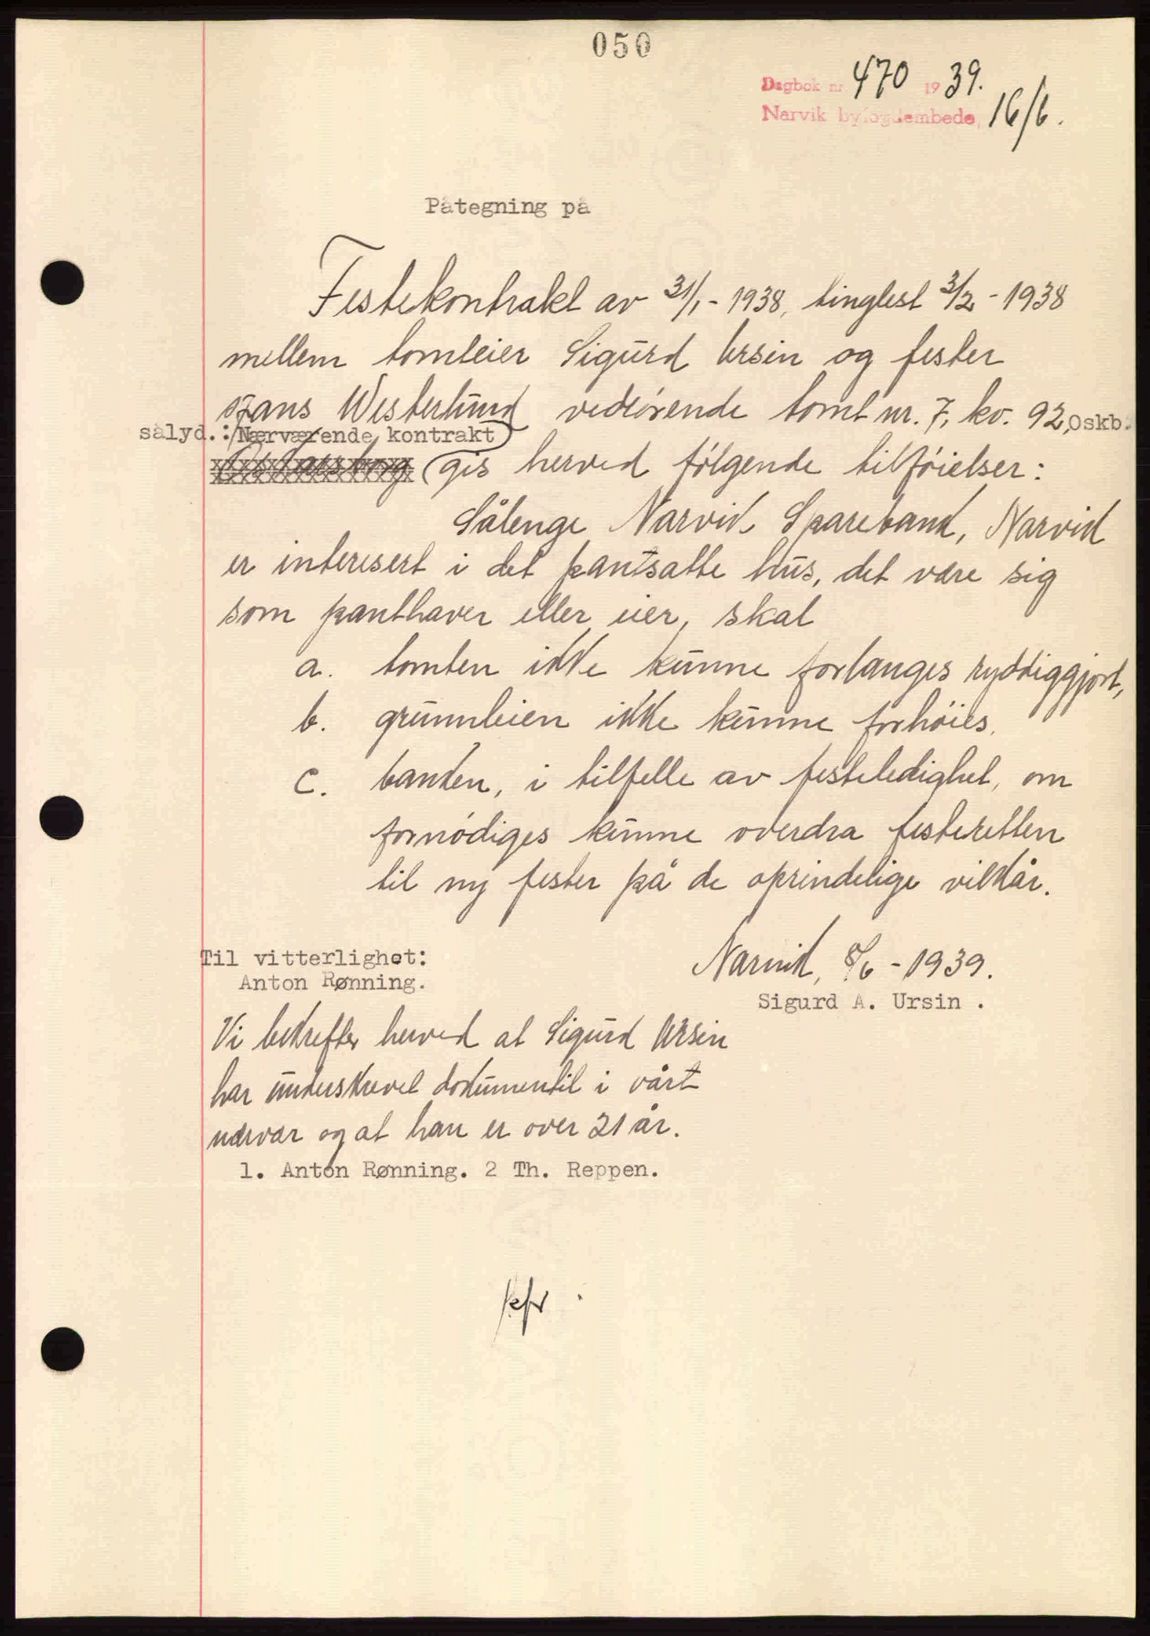 050
Dagbok nr 470 1939.
Narvik byfogdembede, 16/6.
Påtegning på
Festekontrakt av 31/1 - 1938, tinglest 3/2 - 1938
mellem tomteier Sigurd Ursin og fester
Hans Westerlund vedrørende tomt nr. 7, kv. 92, Oskb.
sålyd.: Nærværende kontrakt
gis herved følgende tilføielser:
Sålenge Narvik Sparebank, Narvik
er interesert i det pantsatte hus, det være sig
som panthaver eller eier, skal
a. tomten ikke kunne forlanges ryddiggjort,
b. grunnleien ikke kunne forhøies.
c. banken, i tilfelle av festeledighet, om
fornødiges kunne overdra festeretten
til ny fester på de oprindelige vilkår.
Til vitterlighet:
Anton Rønning.
Narvik, 8/6 - 1939.
Sigurd A. Ursin .
Vi bekrefter herved at Sigurd Ursin
har underskrevet dokumentet i vårt
nærvær og at han er over 21 år.
1. Anton Rønning. 2 Th. Reppen.